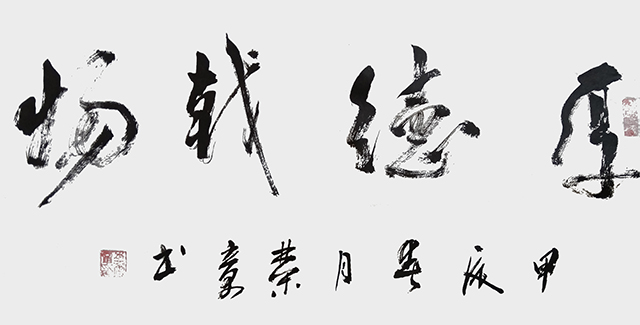 厚德载物
甲辰春月荣 书